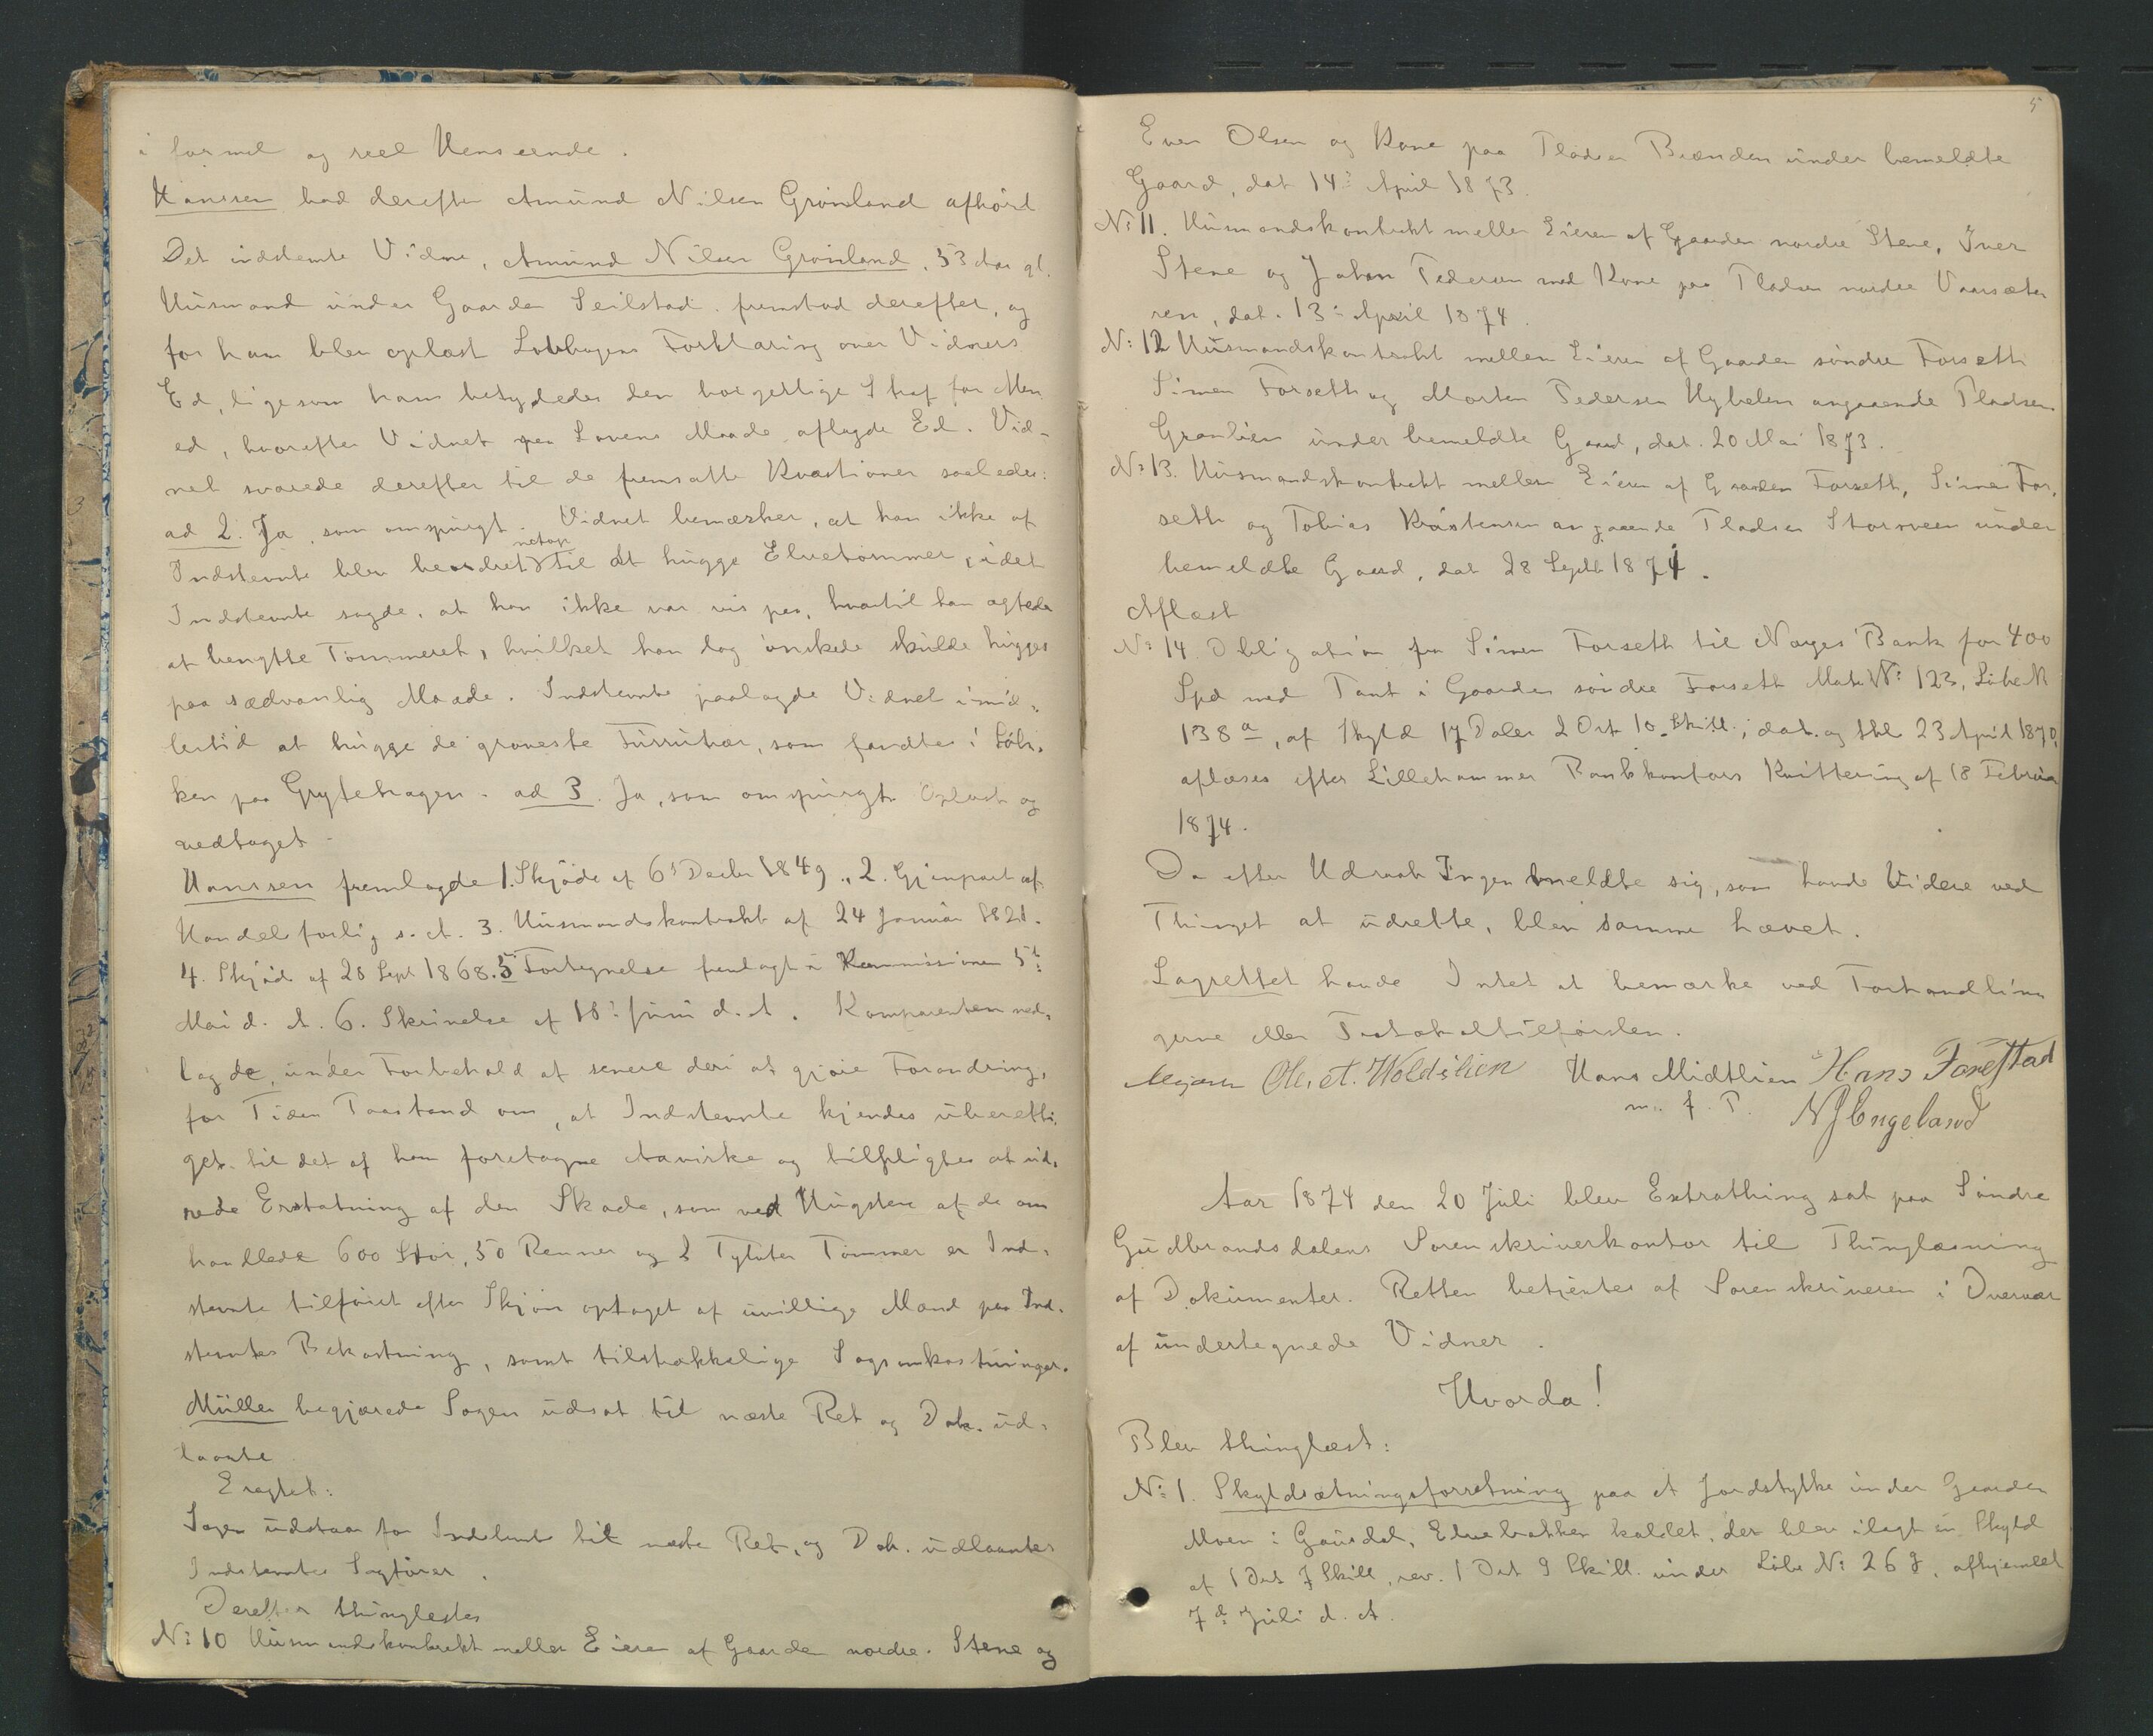 i formel og reel Henseende.
Hanssen bad derefter Amund Nilsen Grønland afhørt
Det indstemte Vidne, Amund Nilsen Grønland, 53 Aar gl.
Husmand under Gaarden Seilstad fremstod derefter, og
for ham blev oplæst Lovbogens Forklaring over Vidners
Ed, ligesom ham betydedes den borgerlige Straf for Men
ed, hvorefter Vidnet paa Lovens Maade aflagde Ed. Vid-
net svarede derefter til de fremsatte Kvæstioner saaledes:
ad 2. Ja, som omspurgt. Vidnet bemærker, at han ikke af
Indstevnte blev beordret netop til at hugge Elvetømmer, idet
Indstevnte sagde, at han ikke var vis paa, hvortil han agtede
at benytte Tømmeret, hvilket han dog ønskede skulde hugges
paa sædvanlig Maade. Indstevnte paalagde Vidnet imid-
lertid at hugge de groveste Furrutrær, som fandtes i Løk-
ken paa Grytehagen. ad 3. Ja, som omspurgt. Oplæst og
vedtaget.
Hanssen fremlagde 1. Skjøde af 6 Decbr 1849., 2. Gjenpart af
Handelsforlig s. A. 3. Husmandskontrakt af 24 Januar 1821.
4. Skjøde af 28 Sept 1868. 5 Fortegnelse fremlagt i Kommissionen 5t
Mai d. A. 6. Skrivelse af 18 Juni d. A. Komparenten ned-
lagde, under Forbehold af senere deri at gjøre Forandring,
for Tiden Paastand om, at Indstevnte kjendes uberetti-
get til det af ham foretagne Aavirke og tilpligtes at ud-
rede Erstatning af den Skade, som ved Hugsten af de om
handlede 600 Stør, 50 Renner og 2 Tylvter Tømmer er Ind-
stevnte tilføiet efter Skjøn optaget af uvillige Mænd paa Ind-
stevntes Bekostning, samt tilstrækkelige Sagsomkostninger.
Müller begjærede Sagen udsat til næste Ret og Dok. ud-
laante
Eragtet:
Sagen udstaar for Indstevnte til næste Ret, og Dok. udlaantes
Indstevntes Sagfører.
Derefter thinglæstes
No 10 Husmandskontrakt mellem Eieren af Gaarden nordre Stene og
5
Even Olsen og Kone paa Pladsen Brænden under bemeldte
Gaard, dat 14 April 1873.
No 11. Husmandskontrakt mellem Eieren af Gaarden nordre Stene, Iver
Stene og Johan Pedersen med Kone paa Pladsen nordre Vaarsæter
ren, dat. 13 April 1874.
No 12 Husmandskontrakt mellem Eieren af Gaarden søndre Forseth
Simen Forseth og Morten Pedersen Nybelen angaaende Pladsen
Granlien under bemeldte Gaard, dat. 20 Mai 1873.
No 13. Husmandskontrakt mellem Eieren af Gaarden Forseth, Simen For-
seth og Tobias Kristensen angaaende Pladsen Storsveen under
bemeldte Gaard, dat 28 Septb 1871.
Aflæst
No 14. Obligation fra Simen Forseth til Norges Bank for 400
Spd med Pant i Gaarden søndre Forseth Matr No 123, Løbe N
138 a, af Skyld 17 Daler 2 Ort 10 Skill; dat. og thl. 23 April 1870,
aflæses efter Lillehammer Bankkontors Kvittering af 18 Februar
1874.
Da efter Udraab Ingen meldte sig, som havde Videre ved
Thinget at udrette, blev samme hævet.
Lagrettet havde Intet at bemærke ved Forhandlin
gerne eller Protokoltilførslen.
Ole A. Woldslien Hans Midtlien Hans Forestad
m. f. P. N J Engeland
Aar 1874 den 20 Juli blev Extrathing sat paa Søndre
Gudbrandsdalens Sorenskriverkontor til Thinglæsning
af Dokumenter. Retten betjentes af Sorenskriveren i Overvær
af undertegnede Vidner.
Hvorda!
Blev thinglæst:
No 1. Skyldsætningsforretning paa et Jordstykke under Gaarden
Moen i Gausdal, Elvebakken kaldet, der blev ilagt en Skyld
af 1 Ort 7 Skill, rev. 1 Ort 9 Skill. under Løbe No 26 g, afhjemlet
7d Juli d. A.